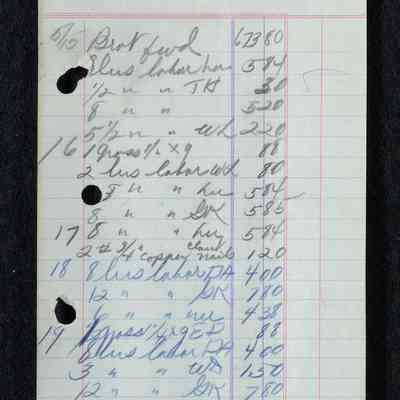 6/15 Brot fwd 673 80
8 hrs labor Lu 5 84
1/2 " " TH 30
8 " " 5 20
5 1/2 " " WL 2 20
16 1 Gross 1/2 x 9 88
2 hrs labor WL 80
8 " " Lu 5 84
8 " " GK 5 85
17 8 " " Lu 5 84
2 # 3/4" Clout copper nails 1 20
18 8 hrs labor DA 4 00
12 " " GK 7 80
6 " " Lu 4 38
19 1 Gross 88
8 hrs labor DA 4 00
3 " " WR 1 50
12 " " GK 7 80